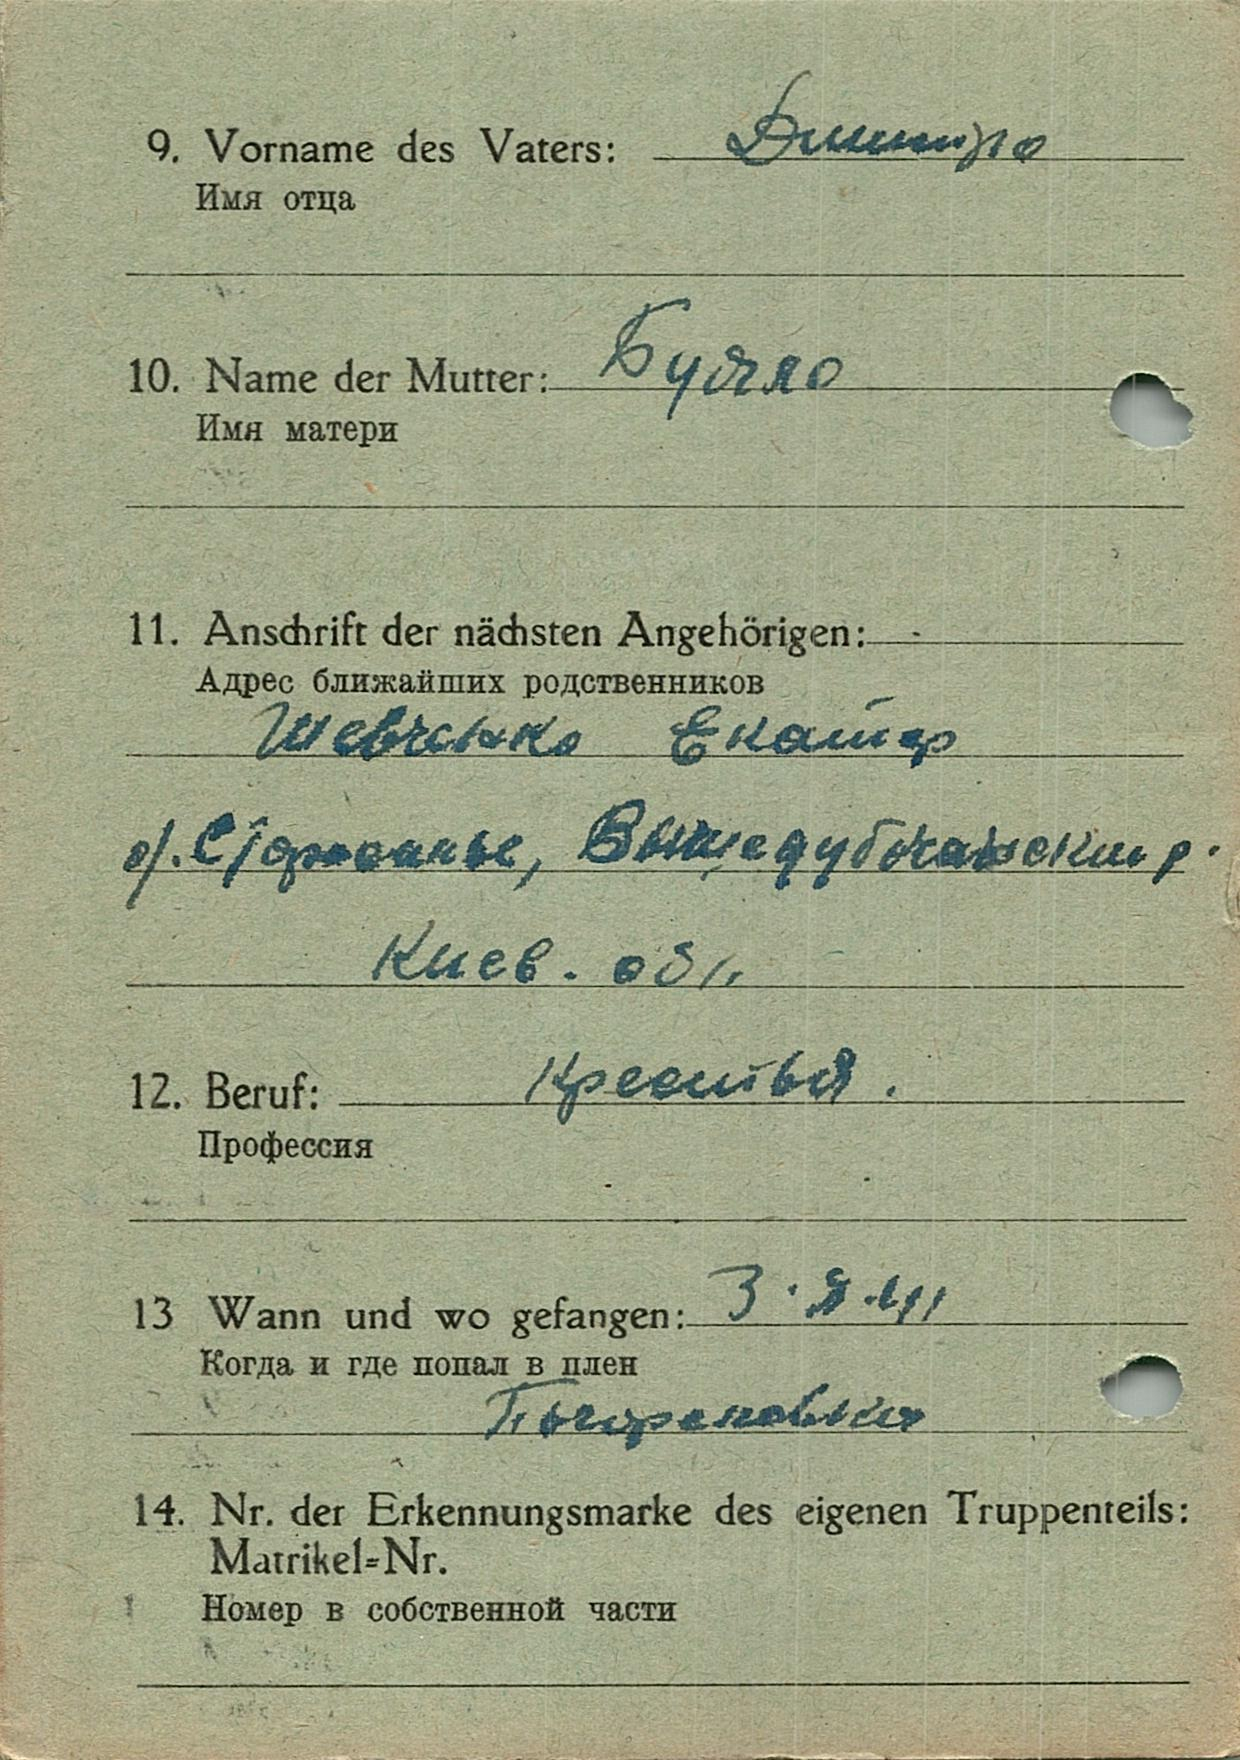 9. Vorname des Vaters: Дмитро
Имя отца
10. Name der Mutter:
Имя матери
11. Anschrift der nächsten Angehörigen:
Адрес ближайших родственников
Шевченко Екатер
Киев. обл.
12. Beruf: Крестья.
Профессия
13 Wann und wo gefangen: 3.
Когда и где попал в плен
14. Nr. der Erkennungsmarke des eigenen Truppenteils:
Matrikel=Nr.
Номер в собственной части